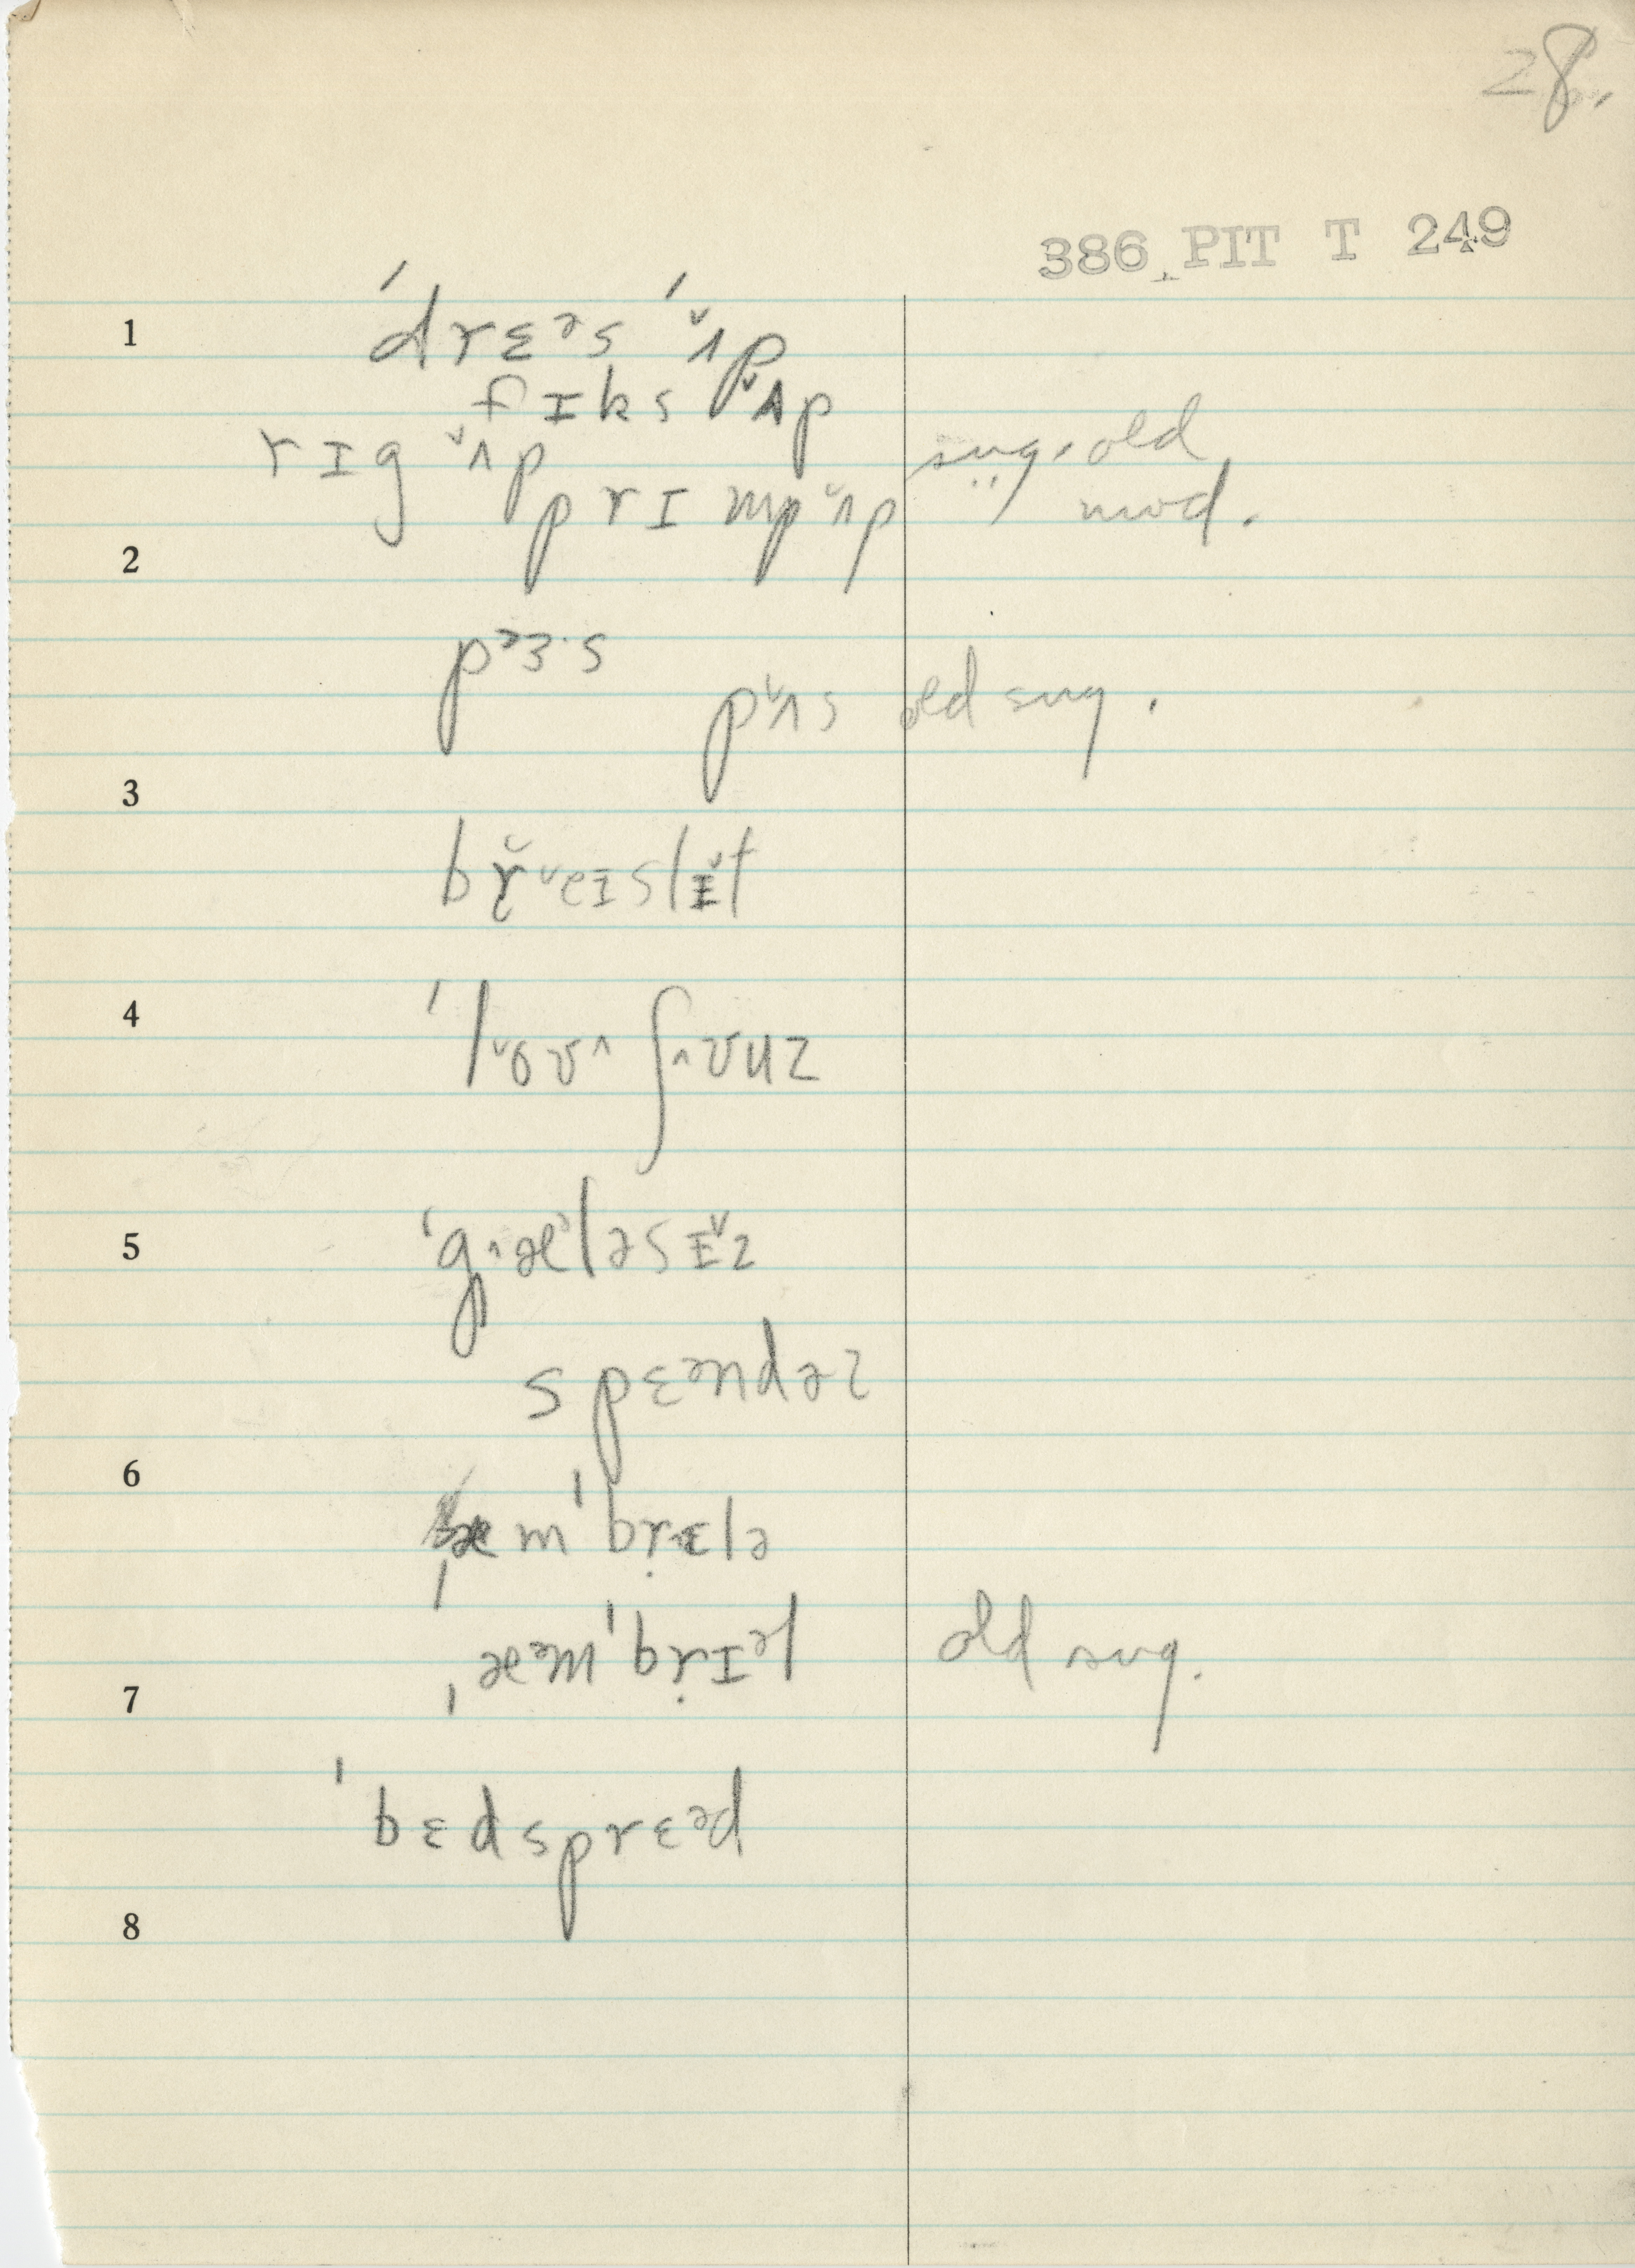 28.
386 PIT T 249
1 ˈdrɛᵊs ˈʌ̌p
fɪks ʌ̌p
rɪg ʌ̌p sug. old
prɪmp ʌ̌p " mod.
2
pᵊɜ·s
pʌ̌s old sug.
3
bṛ̌ˇeɪslɪ̌t
4
ˈlˇoʊ^ ʃ^ʊuz
5 ˈg^æᵊləsɪ̌z
spɛᵊndəz
6
ˌæmˈbṛɛlə
ˌæᵊmˈbṛɪᵊl old sug.
7
ˈbɛdsprɛᵊd
8